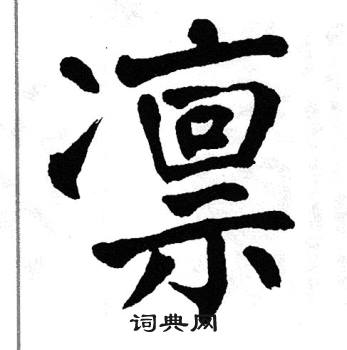 凛
词典网